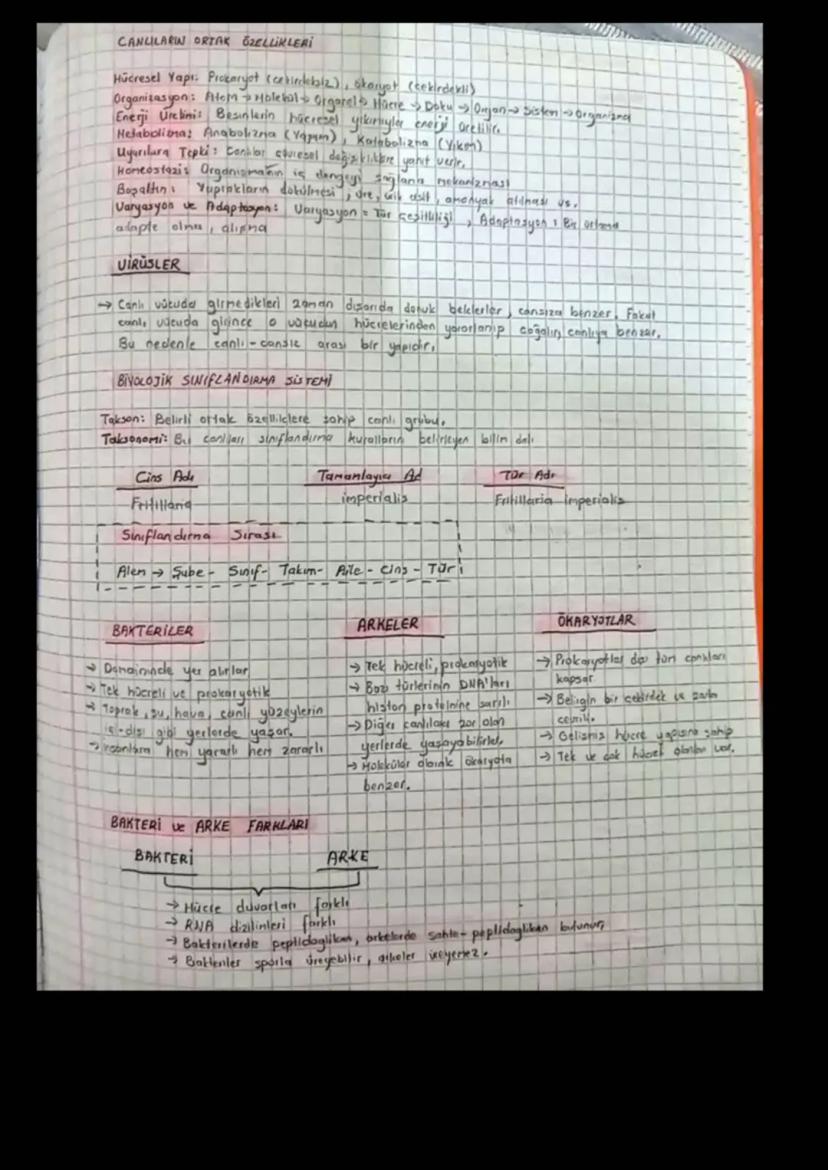 CANLILARIN ORTAK ÖZELLİKLERİ
Hücresel Yapı: Prokaryot (çekirdeksiz), ökaryot (çekirdekli)
Organizasyon: Atom → Molekül → Organel → Hücre → Doku → Organ → Sistem → Organizma
Enerji Üretimi: Besinlerin hücresel yıkımıyla enerji üretilir.
Metabolizma: Anabolizma (Yapım), Katabolizma (Yıkım)
Uyarılara Tepki: Canlılar çevresel değişikliklere yanıt verir.
Homeostazi: Organizmanın iç dengeyi sağlama mekanizması
Boşaltım: Yaprakların dökülmesi, üre, ürik asit, amonyak atılması vs.
Varyasyon ve Adaptasyon: Varyasyon = Tür çeşitliliği, Adaptasyon: Bir ortama
adapte olma, alışma
VİRÜSLER
→ Canlı vücuda girmedikleri zaman dışarıda donuk beklerler, cansıza benzer. Fakat
canlı vücuda girince o vücudun hücrelerinden yararlanıp çoğalır, canlıya benzer.
Bu nedenle canlı-cansız arası bir yapıdır.
BİYOLOJİK SINIFLANDIRMA SİSTEMİ
Takson: Belirli ortak özelliklere sahip canlı grubu.
Taksonomi: Bu canlıları sınıflandırma kurallarını belirleyen bilim dalı
Cins Adı Tamamlayıcı Ad Tür Adı
Fritillaria imperialis Fritillaria imperialis
Sınıflandırma Sırası
Alem → Şube - Sınıf - Takım - Aile - Cins - Tür
BAKTERİLER
→ Domaininde yer alırlar
→ Tek hücreli ve prokaryotik
→ Toprak, su, hava, canlı yüzeylerin
iç-dışı gibi yerlerde yaşar.
→ İnsanlara hem yararlı hem zararlı
ARKELER
→ Tek hücreli, prokaryotik
→ Bazı türlerinin DNA'ları
histon proteinine sarılı
→ Diğer canlılara zor olan
yerlerde yaşayabilirler.
→ Moleküler olarak ökaryota
benzer.
ÖKARYOTLAR
→ Prokaryotlar tüm canlıları
kapsar
→ Belirgin bir çekirdek ve zarla
çevrili.
→ Gelişmiş hücre yapısına sahip
→ Tek ve çok hücreli olanları var.
BAKTERİ ve ARKE FARKLARI
BAKTERİ ARKE
→ Hücre duvarları farklı
→ RNA dizilimleri farklı
→ Bakterilerde peptidoglikan, arkelerde sahte-peptidoglikan bulunur,
→ Bakteriler sporla üreyebilir, arkeler üreyemez.